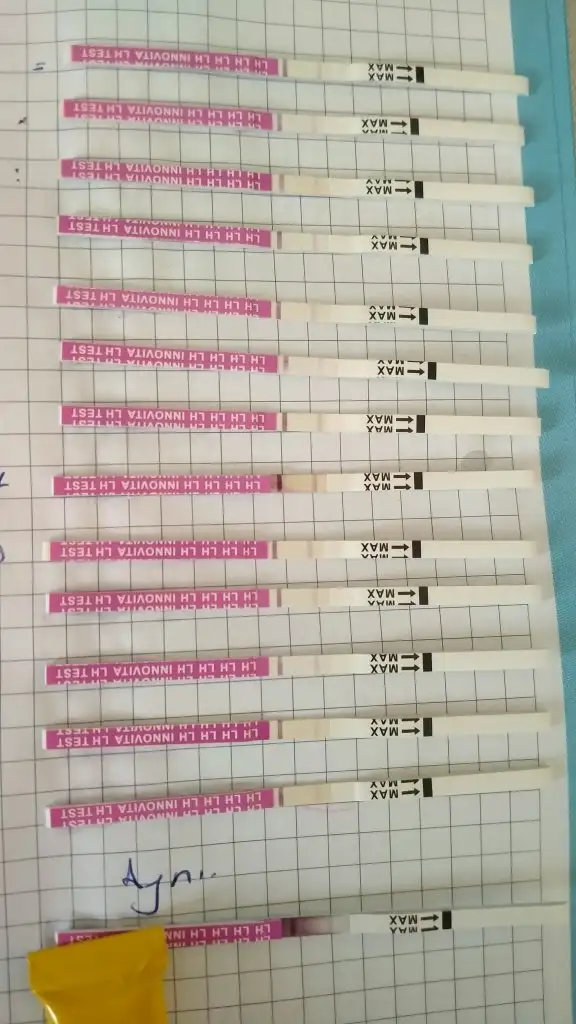 LH LH LH LH INNOVITA LH TEST MAX
LH LH LH LH INNOVITA LH TEST MAX
LH LH LH LH INNOVITA LH TEST MAX
LH LH LH LH INNOVITA LH TEST MAX
LH LH LH LH INNOVITA LH TEST MAX
LH LH LH LH INNOVITA LH TEST MAX
LH LH LH LH INNOVITA LH TEST MAX
LH LH LH LH INNOVITA LH TEST MAX
LH LH LH LH INNOVITA LH TEST MAX
LH LH LH LH INNOVITA LH TEST MAX
LH LH LH LH INNOVITA LH TEST MAX
LH LH LH LH INNOVITA LH TEST MAX
LH LH LH LH INNOVITA LH TEST MAX
Ayni..
LH LH LH LH MAX